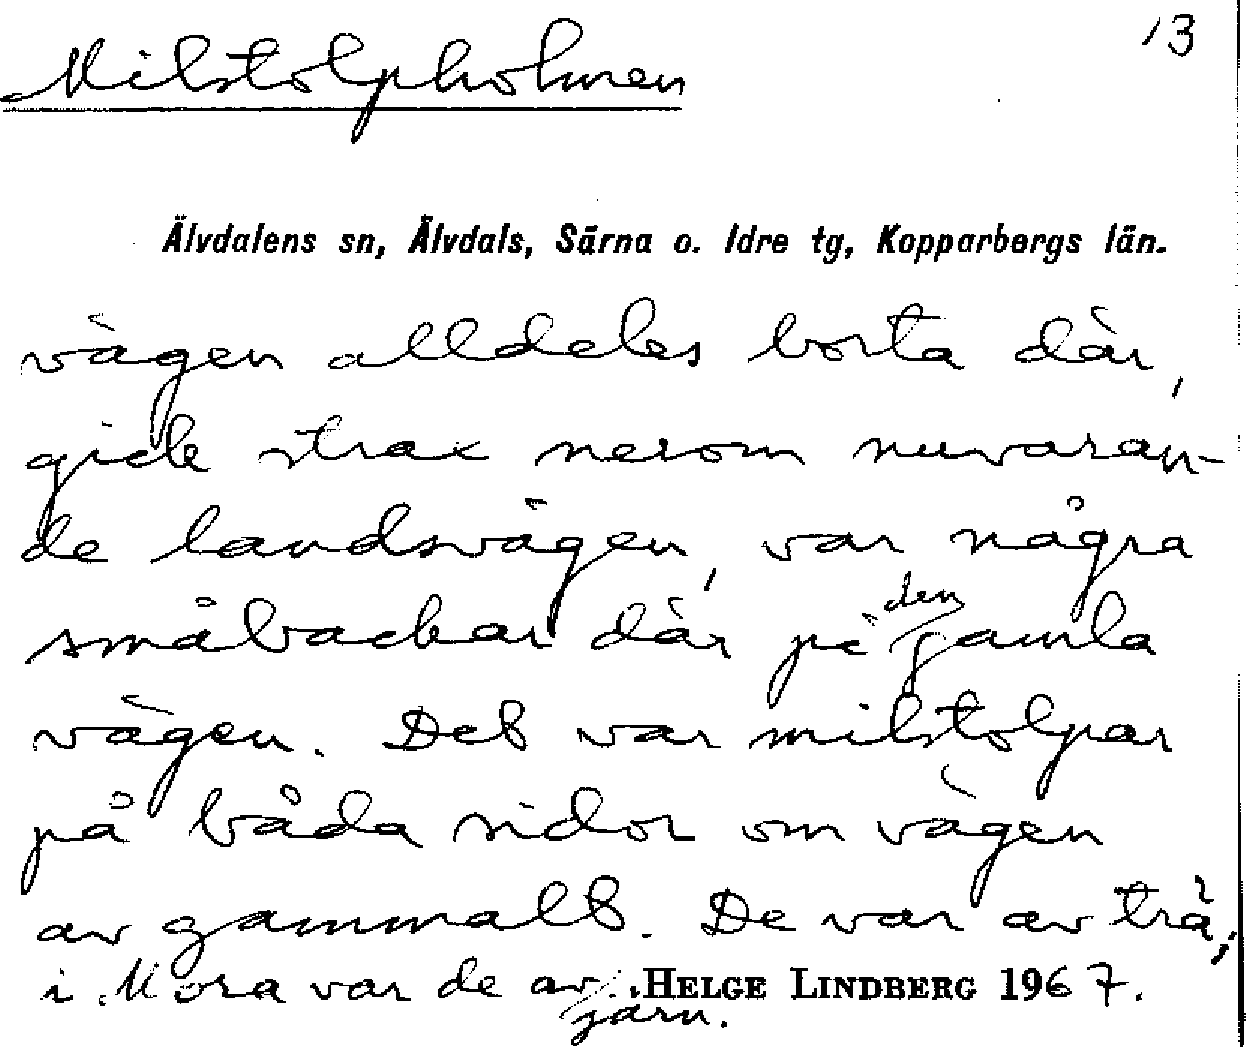 13
Milstolpholmen
Älvdalens sn, Älvdals, Särna o. Idre tg, Kopparbergs län.
vägen alldeles borta där,
gick strax nerom nuvaran-
de landsvägen, var några
småbackar där på den gamla
vägen. Det var milstolpar
på båda sidor om vägen
av gammalt. De var av trä;
i Mora var de av järn.
HELGE LINDBERG 1967.